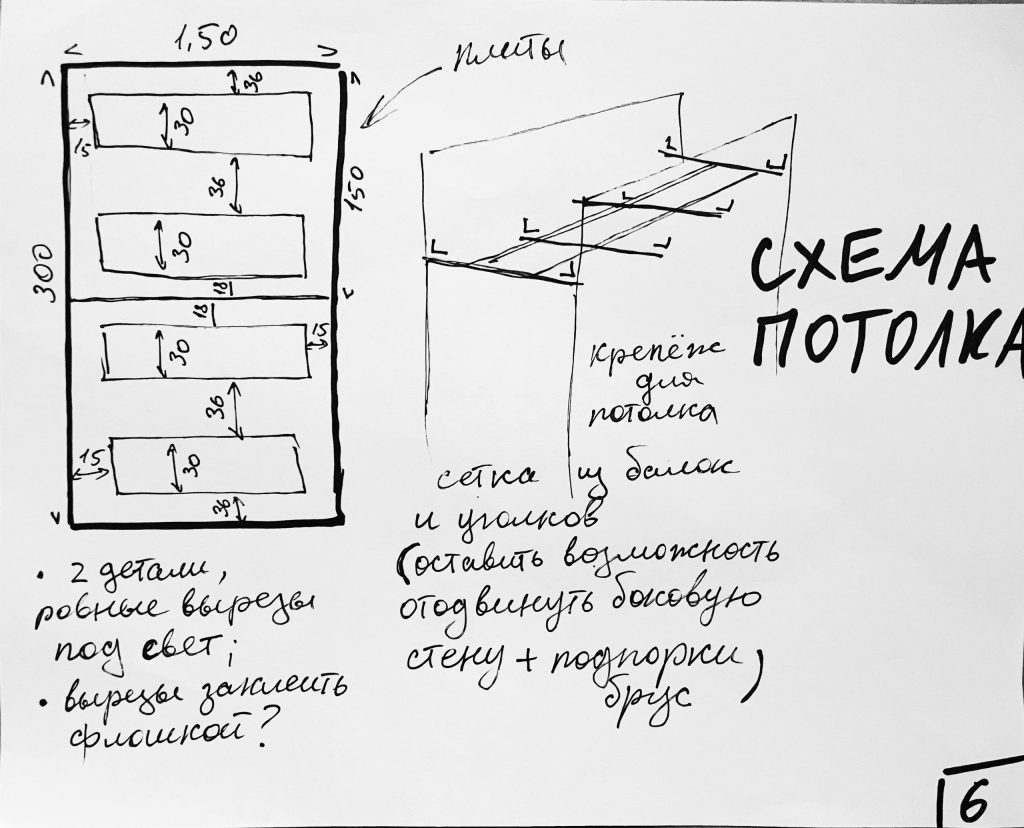 1,50
плиты
36
30
15
36
150
300
30
18
18
15
30
36
15
30
36
СХЕМА
ПОТОЛКА
крепёж
для
потолка
сетка из балок
и уголков
(оставить возможность
отодвинуть боковую
стену + подпорки)
брус
• 2 детали,
ровные вырезы
под свет;
• вырезы заклеить
флошкой?
6